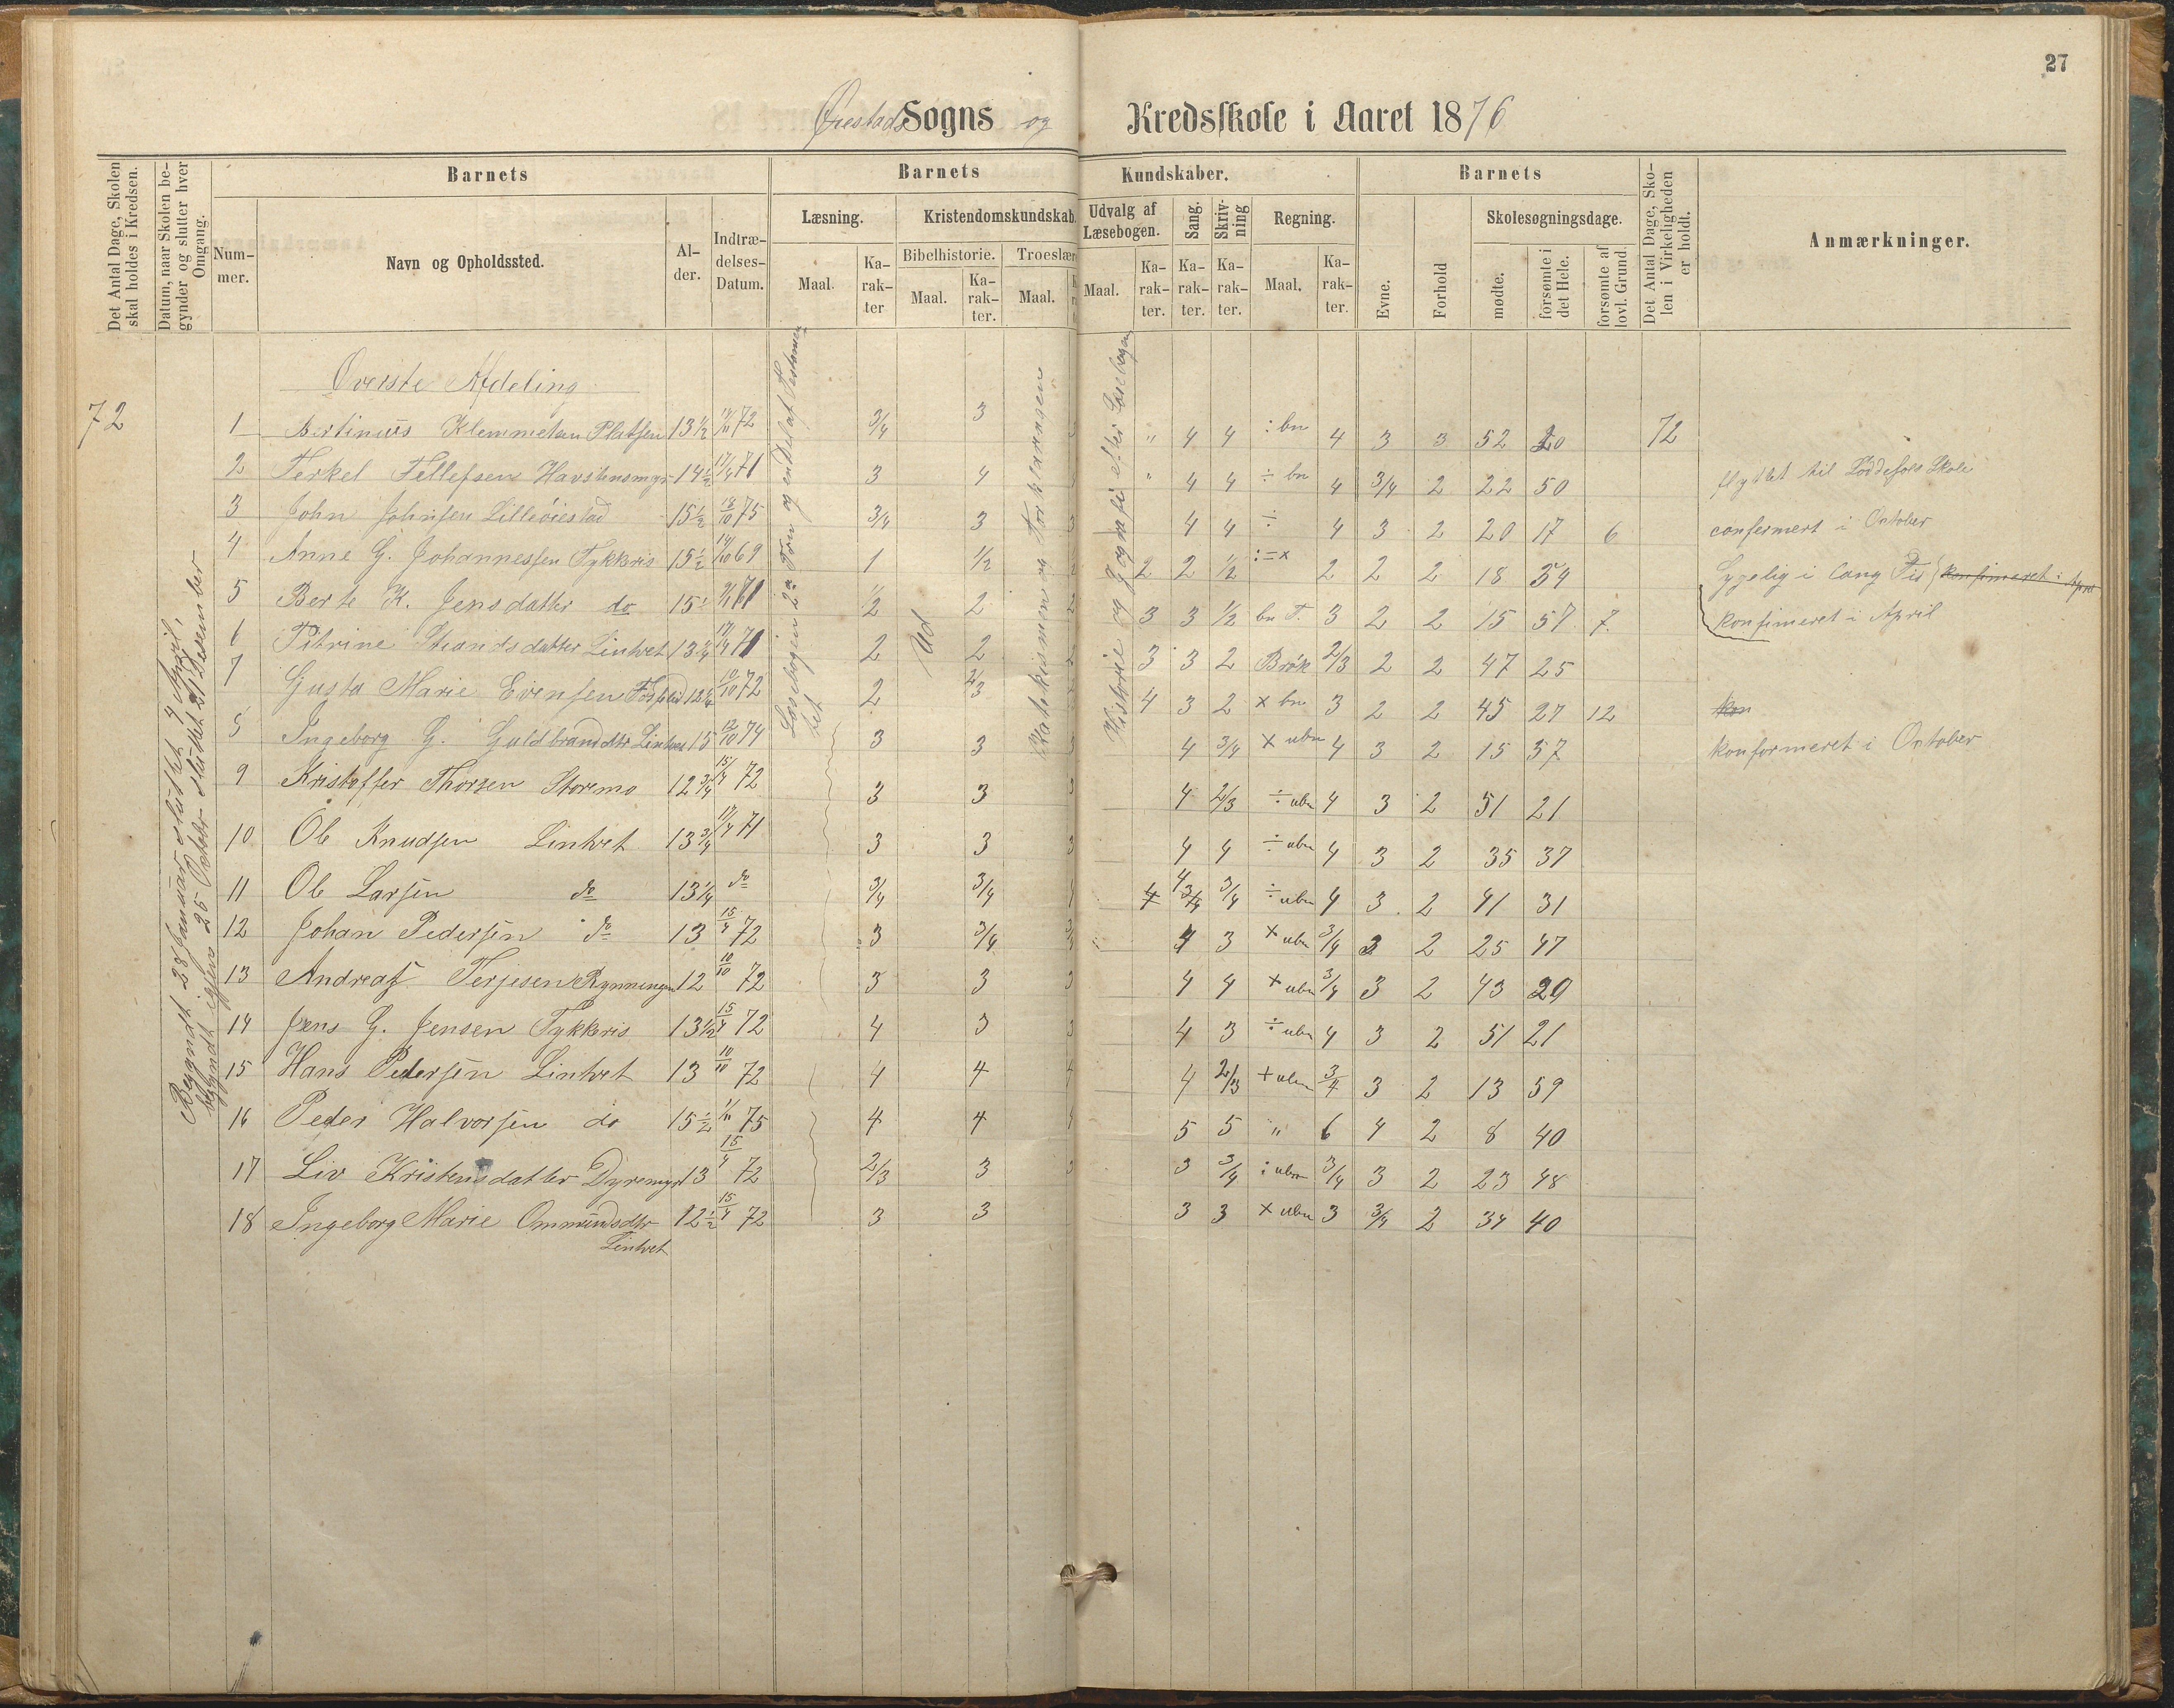 27
Øiestads Sogns og Kredsskole i Aaret 1876
Det Antal Dage, Skolen skal holdes i Kredsen.
Datum, naar Skolen begynder og slutter hver Omgang.
Barnets
Nummer.
Navn og Opholdssted.
Alder.
Indtrædelses-Datum.
Barnets Kundskaber.
Læsning.
Maal.
Karakter
Kristendomskundskab.
Bibelhistorie.
Maal.
Karakter.
Troeslær
Maal.
Udvalg af Læsebogen.
Maal.
Karakter.
Sang.
Karakter.
Skrivning
Karakter.
Regning.
Maal.
Karakter.
Barnets
Evne.
Forhold
Skolesøgningsdage.
mødte.
forsømte i det Hele.
forsømte af lovl. Grund.
Det Antal Dage, Skolen i Virkeligheden er holdt.
Anmærkninger.
Begyndt 28 Januar sluttet 4 April,
begyndt igjen 25 October sluttet 21 Desember
Læsebogen 2den Trin og endel af Testamentet
Ud
Katekismen og Forklaringen
Historie og Geografi efter Læsebogen
Øverste Afdeling
72
1 Bertinius Klemmetsen Platsen 13½ 72 3/4 3 " 4 4 : bn 4 3 3 52 20 72
2 Terkel Tellefsen Havstensmyr 14½ 17/4 71 3 4 " 4 4 ÷ bn 4 3/4 2 22 50 flyttet til Løddesøls Skole
3 John Johnsen Lilleøiestad 15½ 18/10 75 3/4 3 3 4 4 ÷ 4 3 2 20 17 6 confermert i October
4 Anne G. Johannessen Tykkeris 15½ 69 1 1/2 2 2 2 1/2 : = x 2 2 2 18 54 Sygelig i lang Tis konfimeret i April
5 Berte K. Jensdatter do 15½ 71 1/2 2 2 3 3 1/2 bn T. 3 2 2 15 57 7. konfimeret i April
6 Pitrine Strandsdatter Lintvet 13¼ 17/4 71 2 2 2 3 3 2 Brøk 2/3 2 2 47 25
7 Gusta Marie Evensen 12¼ 10/10 72 2 2/3 4 3 2 x bn 3 2 2 45 27 12 kon
8 Ingeborg G. Guldbrandsdtr Lintvet 15 12/10 74 3 3 3 4 3/4 x ubn 4 3 2 15 57 konformeret i October
9 Kristoffer Thorsen Storemo 12¾ 15/4 72 3 3 3 4 2/3 ÷ ubn 4 3 2 51 21
10 Ole Knudsen Lintvet 13¾ 17/4 71 3 3 3 4 4 ÷ ubn 4 3 2 35 37
11 Ole Larsen do 13¼ do 3/4 3/4 4 4 3/4 3/4 ÷ ubn 4 3 2 41 31
12 Johan Pedersen do 13 15/4 72 3 3/4 3/4 4 3 x ubn 3/4 3 2 25 47
13 Andreas Terjesen Rynningen 12 10/10 72 3 3 3 4 4 x ubn 3/4 3 2 43 29
14 Jens G. Jensen Tykkeris 13½ 15/4 72 4 3 3 4 3 ÷ ubn 4 3 2 51 21
15 Hans Pedersen Lintvet 13 10/10 72 4 4 4 4 2/3 x ubn 3/4 3 2 13 59
16 Peder Halvorsen do 15½ 75 4 4 4 5 5 " 6 4 2 8 40
17 Liv Kristensdatter Dyremyr 13 15/4 72 2/3 3 3 3 3/4 : ubn 3/4 3 2 23 48
18 Ingeborg Marie Ommundsdtr 12½ 15/4 72 3 3 3 3 x ubn 3 3/4 2 34 40
Lintvet